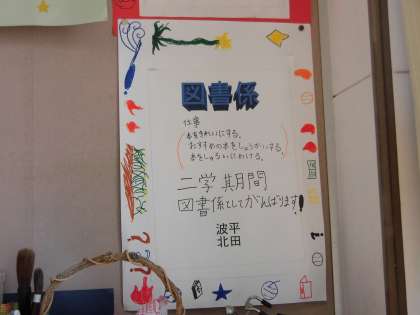 図書係
仕事
本をきれいにする。
おすすめの本をしょうかいする。
本をしゅるいにわける。
二学期間
図書係としてがんばります!
波平
北田